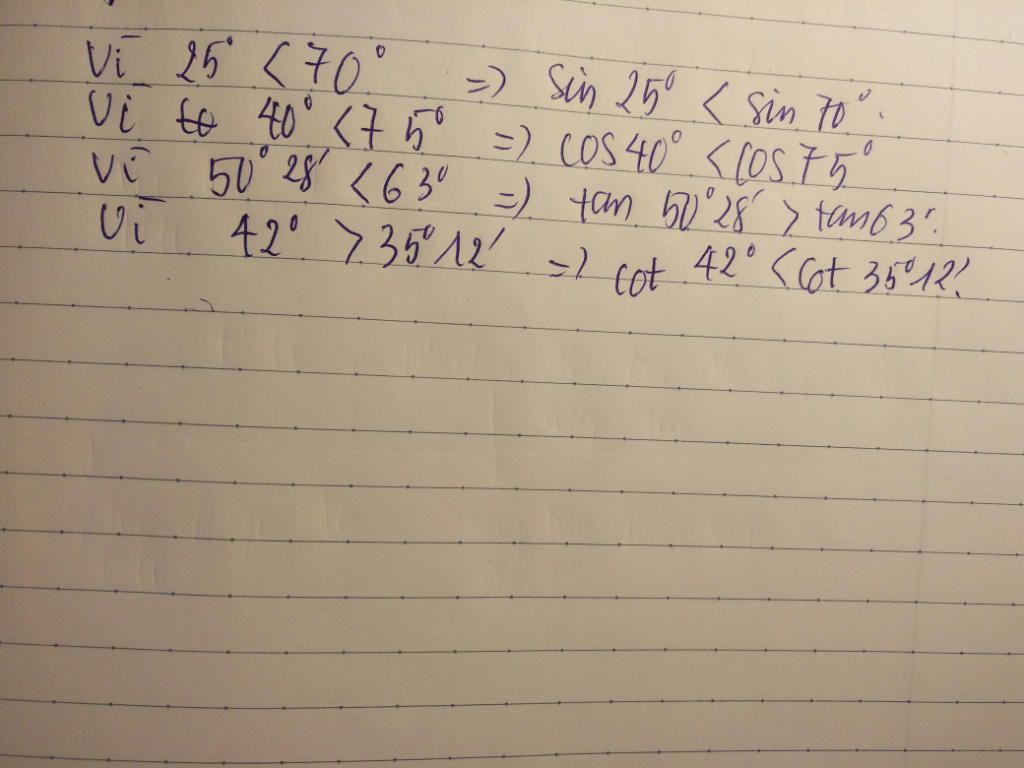 Vì 25° < 70° => Sin 25° < sin 70°.
Vì 40° < 75° => cos 40° < cos 75°
Vì 50° 28' < 63° => tan 50° 28' > tan 63°.
Vì 42° > 35° 12' => cot 42° < cot 35° 12'.